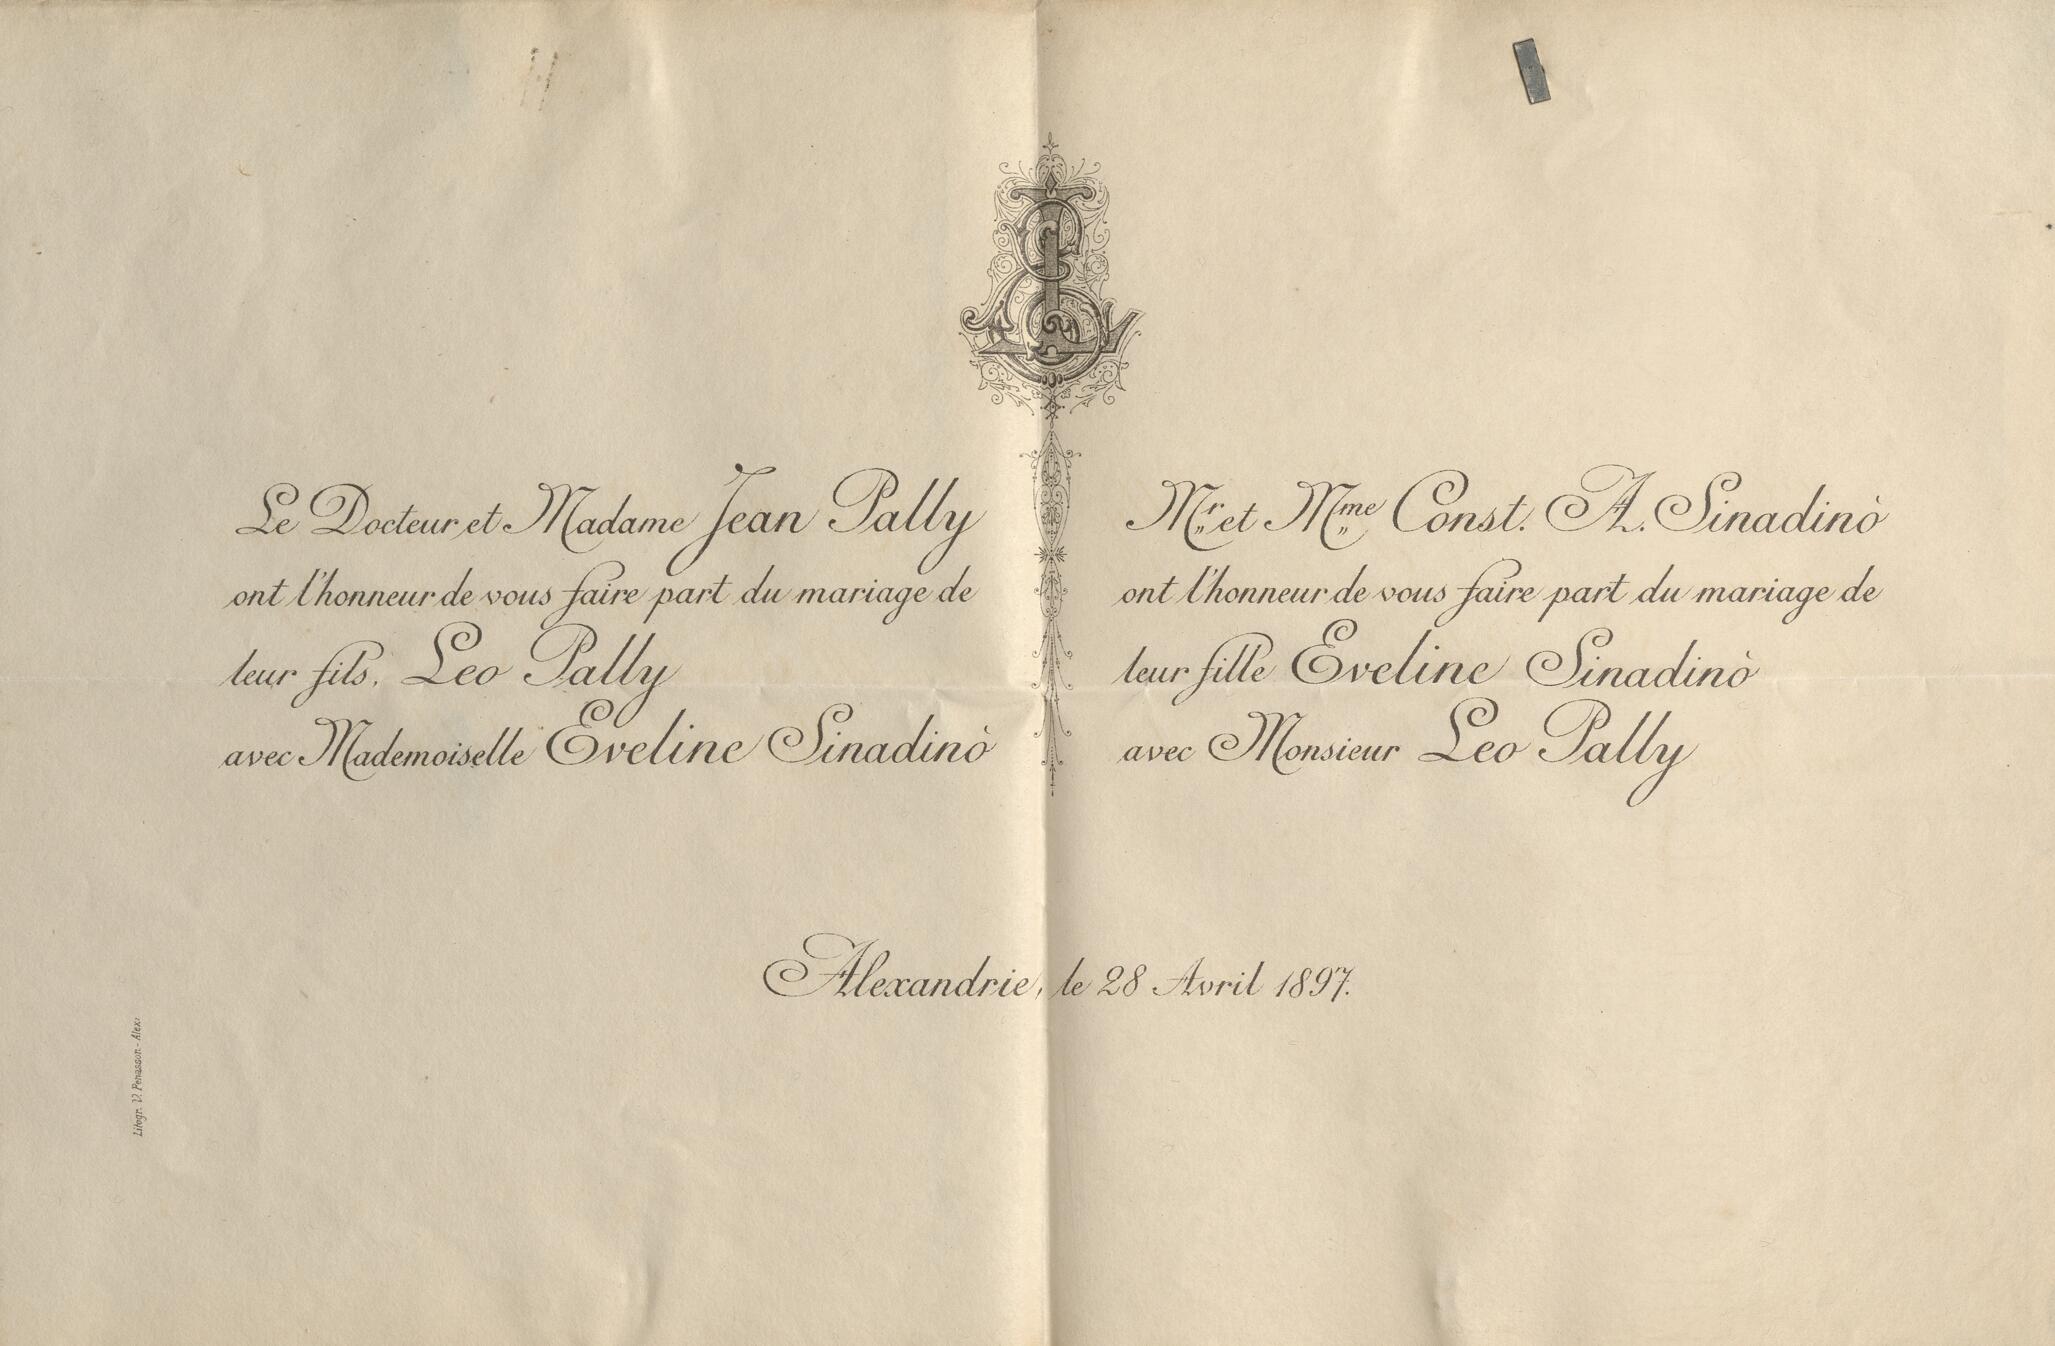 Le Docteur et Madame Jean Pally
ont l'honneur de vous faire part du mariage de
leur fils, Leo Pally
avec Mademoiselle Eveline Sinadinò
Mr et Mme Const. A. Sinadinò
ont l'honneur de vous faire part du mariage de
leur fille Eveline Sinadinò
avec Monsieur Leo Pally
Alexandrie, le 28 Avril 1897.
Litogr. V. Penasson - Alex: